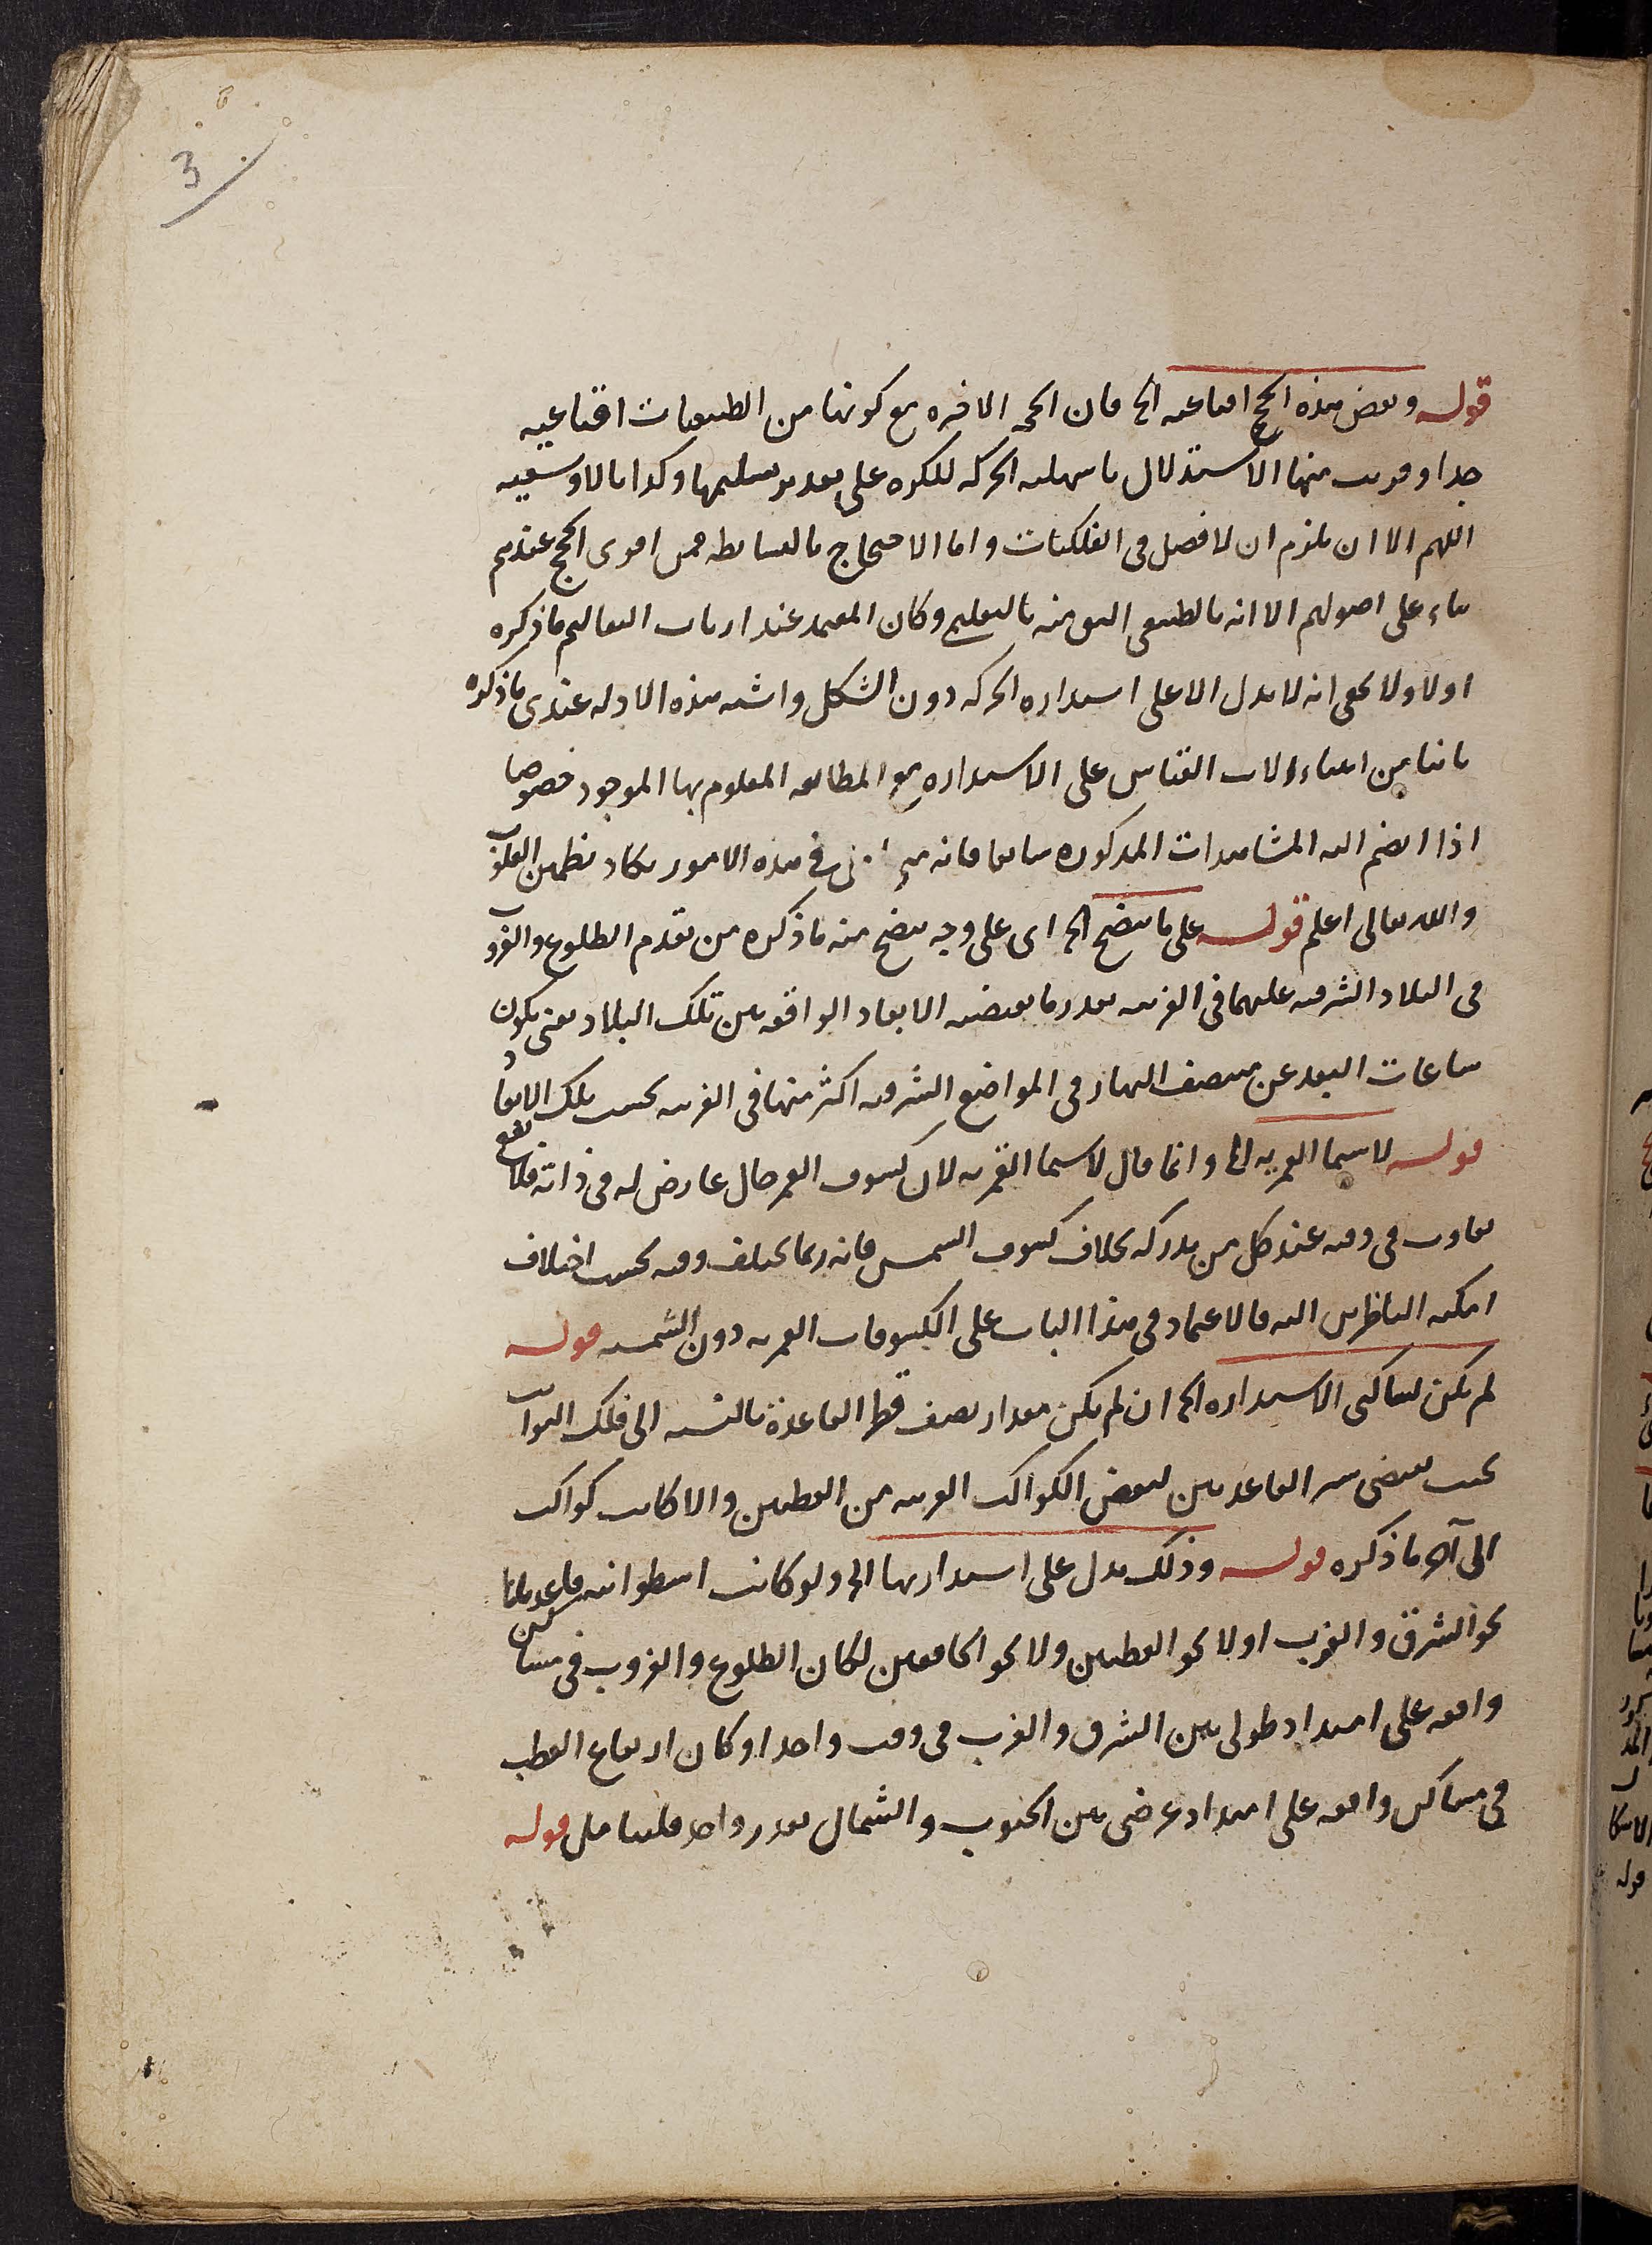 3
قوله وبعض هذه الحجج اقناعيه الخ فان الحجه الاخيره مع كونها من الطبيعيات اقناعيه
جدا وقريب منها الاستدلال باسهليه الحركه للكره على تقدير تسليمها وكذا بالاوسعيه
اللهم الا ان يلتزم ان لا فصل فى الفلكيات واما الاحتجاج بالبساطه فمن اقوى الحجج عندهم
بناء على اصولهم الا انه بالطبيعى اليق منه بالتعليم وكان المعتمد عند ارباب التعاليم ما ذكره
اولا ولا يخفى انه لا يدل الا على استداره الحركه دون الشكل واشبه هذه الادله عندى ما ذكره
ثانيا من ابتناء الات القياس على الاستداره مع المطابقه المعلوم بها الموجود خصوصا
اذا انضم اليه المشاهدات المذكوره سابقا فانه فى هذه الامور يكاد تطمئن القلوب
والله تعالى اعلم قوله على ما يتضح الخ اى على وجه يتضح منه ما ذكره من تقدم الطلوع والغروب
فى البلاد الشرقيه عليهما فى الغربيه بقدر ما يقتضيه الابعاد الواقعه بين تلك البلاد يعنى يكون
ساعات البعد عن منتصف النهار فى المواضع الشرقيه اكثر منها فى الغربيه بحسب تلك الابعاد
قوله لاسيما القمريه الخ وانما قال لاسيما القمريه لان كسوف القمر حال عارض له فى ذاته فلا يقع
تفاوت فى وقته عند كل من يدركه بخلاف كسوف الشمس فانه ربما يختلف وقته بحسب اختلاف
امكنه الناظرين اليه فالاعتماد فى هذا الباب على الكسوفات القمريه دون الشمسيه قوله
لم يكن لساكنى الاستداره الخ ان لم يكن مقدار نصف قطر القاعدة بالنسبه الى فلك الثوابت
بحيث يقتضى ستر القاعدتين لبعض الكواكب القريبه من القطبين والا كانت كواكب
الى آخر ما ذكره قوله وذلك يدل على استدارتها الخ ولو كانت اسطوانيه قاعدتاها
نحو الشرق والغرب او لا نحو القطبين ولا نحو الخافقين لكان الطلوع والغروب فى مساكن
واقعه على امتداد طولى بين الشرق والغرب فى وقت واحد او كان ارتفاع القطب
فى مساكن واقعه على امتداد عرضى بين الجنوب والشمال بقدر واحد فليتامل قوله